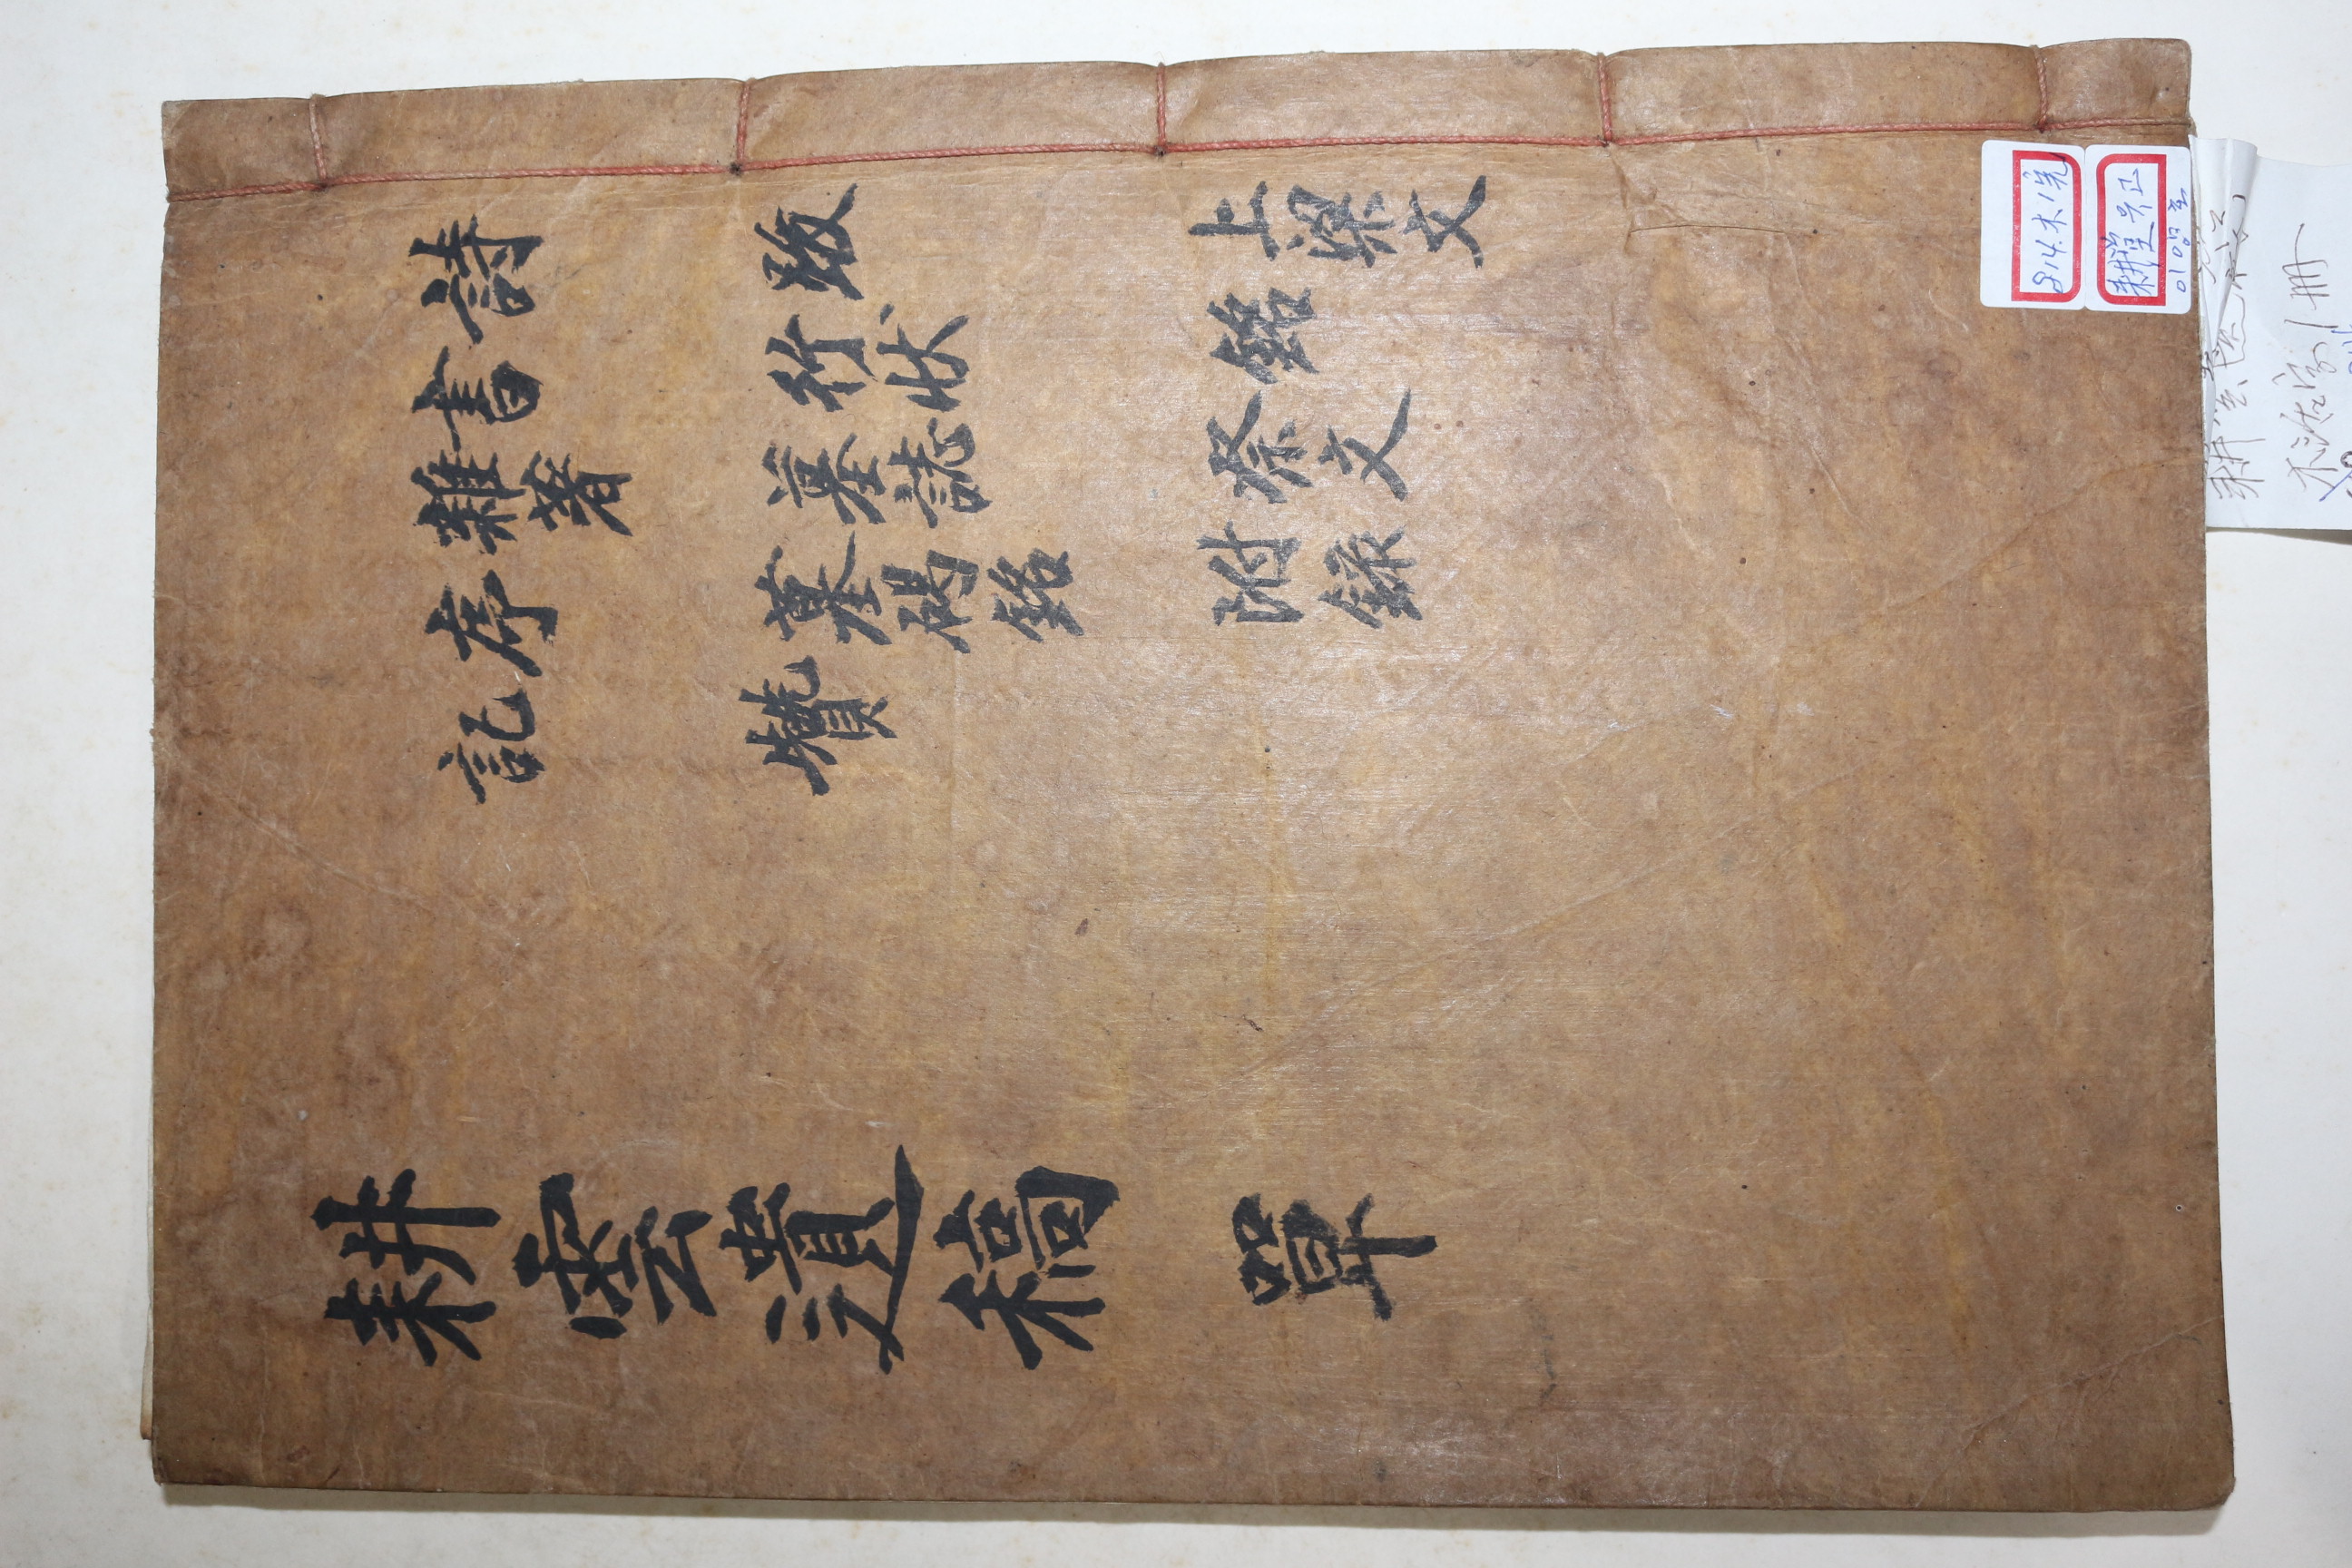 詩
書
雜著
序
記
跋
行狀
墓誌
墓碣銘
贊
上梁文
銘
祭文
附錄
耕雲遺稿 單
814.木1完
耕堂유고
이영호
木活字1冊